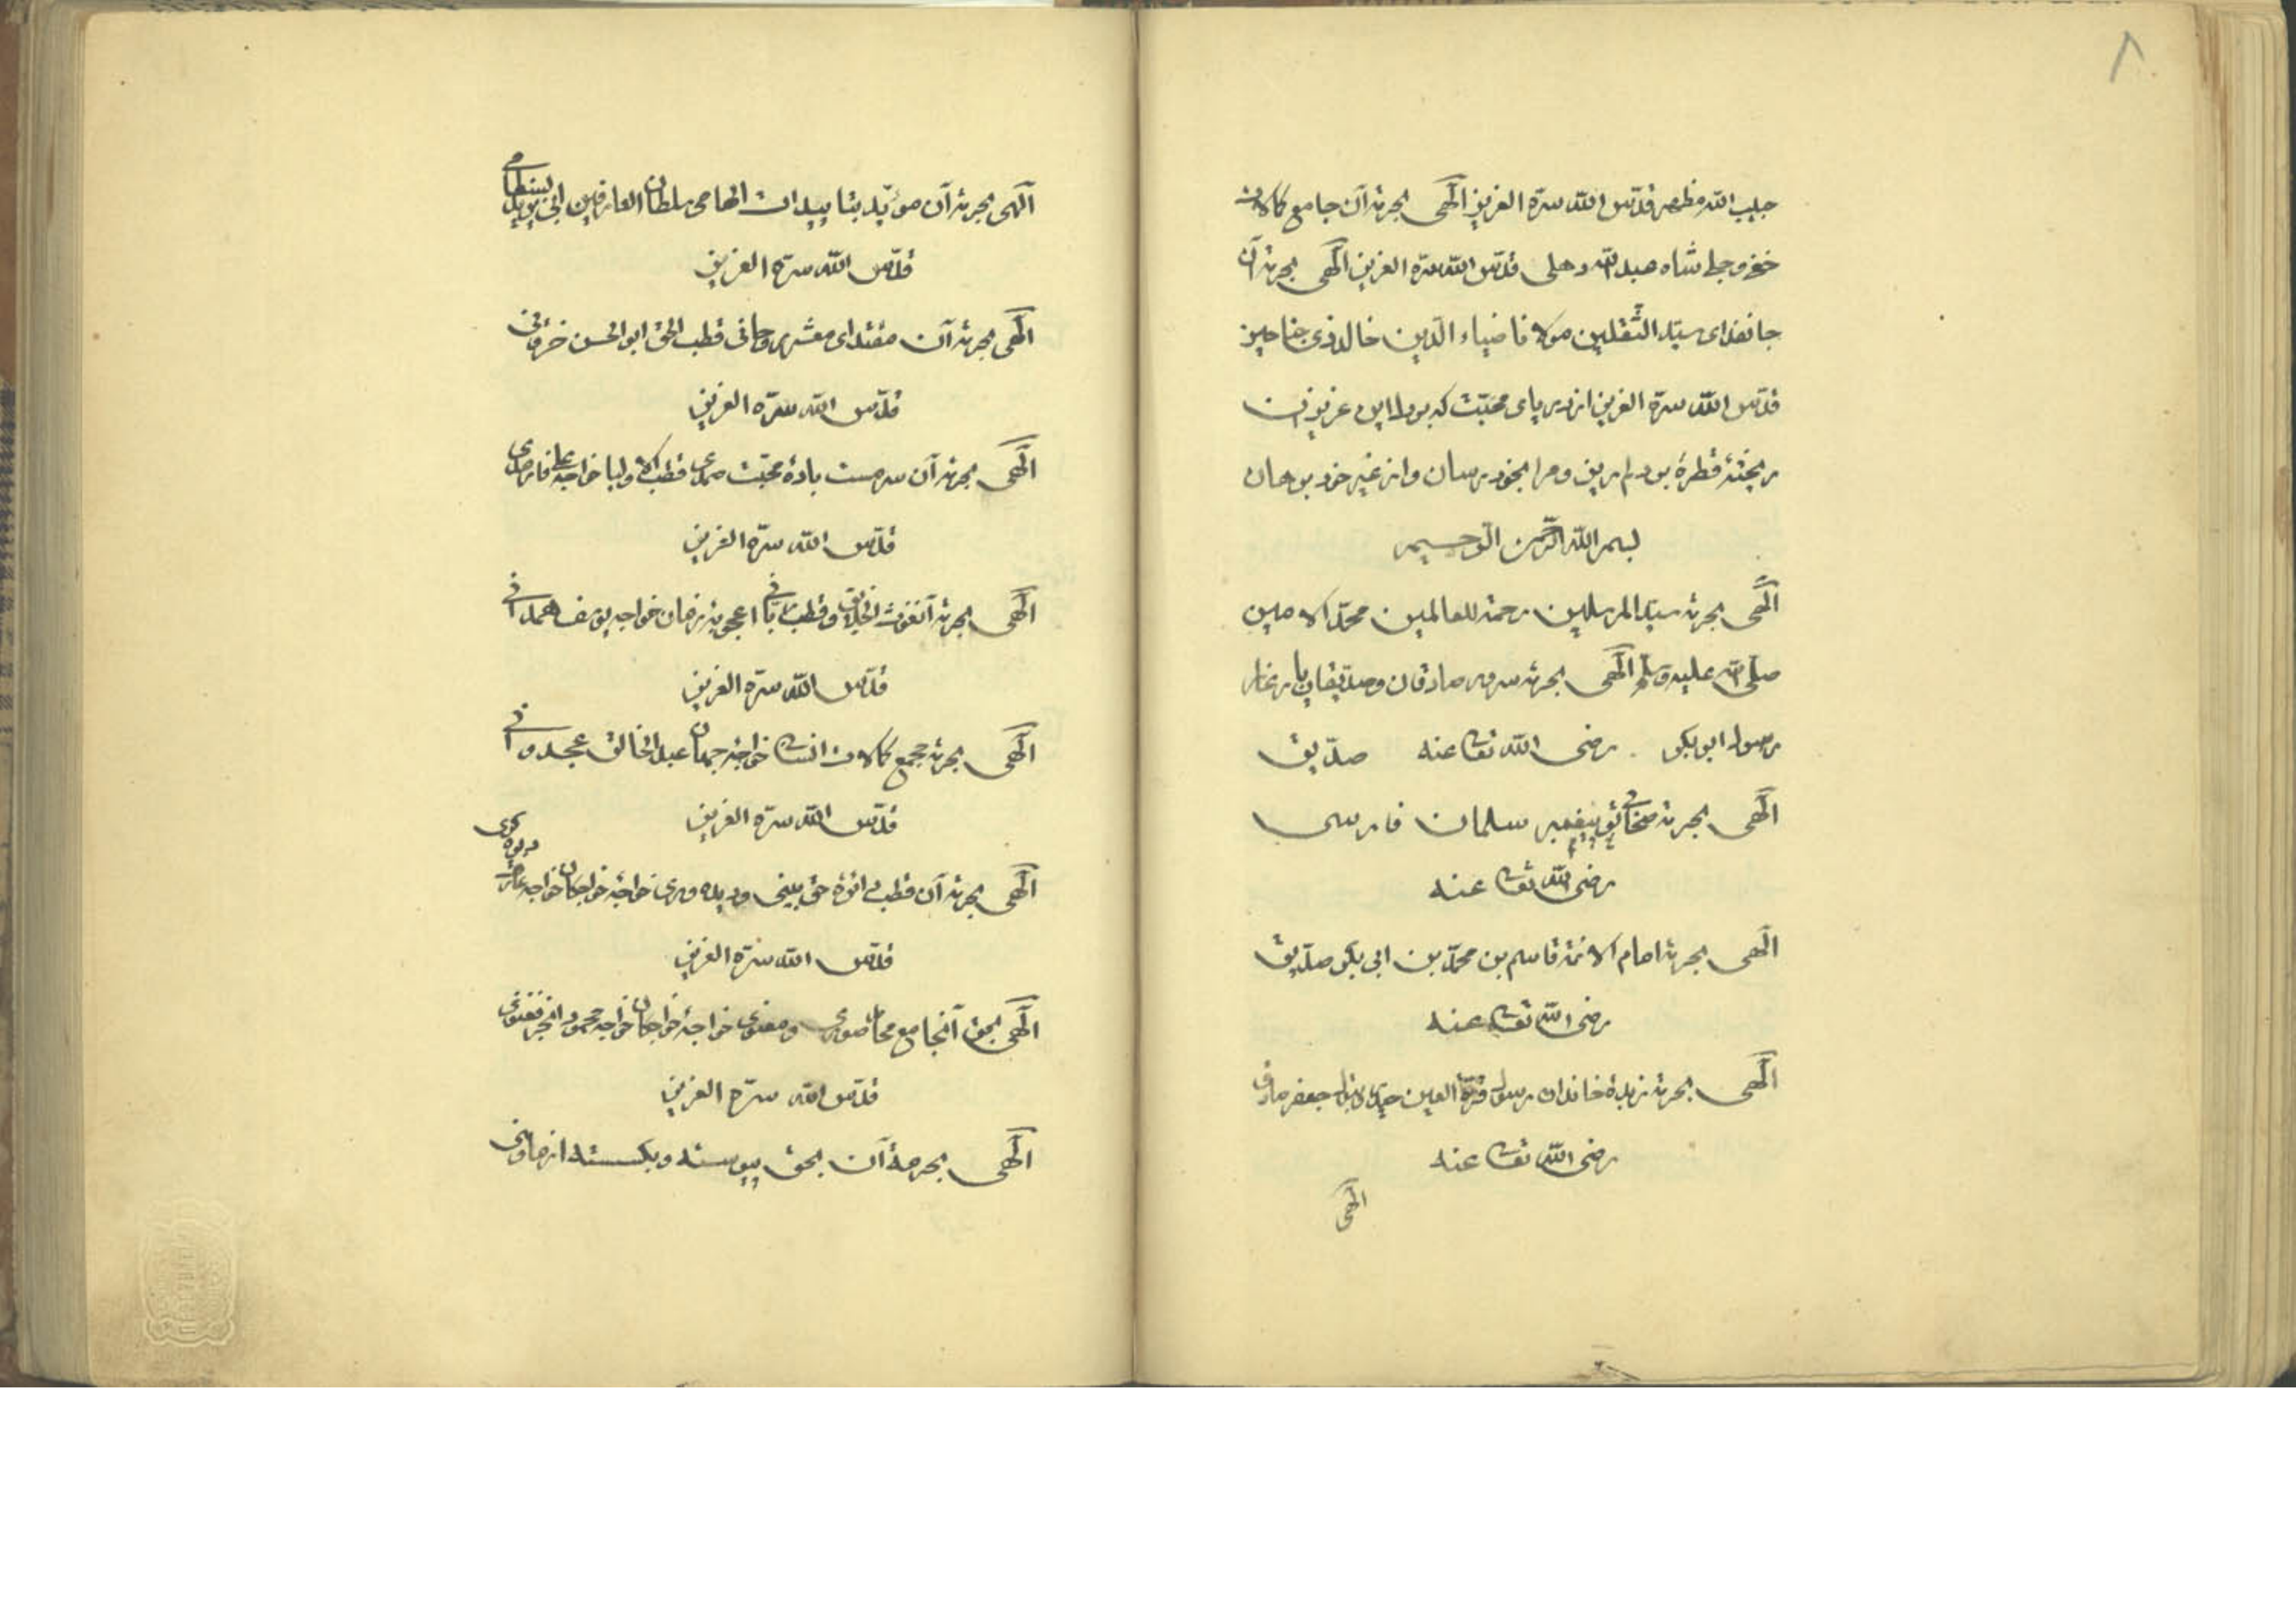 ٨
حبیب الله مظهر قدّس الله سرّه العزیز الٓهی بحرمة آن جامع کمالات
خفی و جلی شاه عبد الله دهلی قدّس الله سرّه العزیز الٓهی بحرمة آن
جانفدای سیّد الثّقلین مولانا ضیاء الدّین خالد ذی جناحین
قدّس الله سرّه العزیز از دریای محبّت که بر دل این عزیزان
ریختهٔ قطرهٔ بر دلم ریز و مرا بخود رسان و از غیر خود برهان
بسم الله الرّحمن الرّحیم
الٓهی بحرمة سیّد المرسلین رحمة للعالمین محمّد الامین
صلّی الله علیه وسلّم الٓهی بحرمة سرور صادقان و صدّیقان یار غار
رسول ابو بکر رضی الله تعا عنه صدّیق
الٓهی بحرمة پیغمبر سلمان فارسی
رضی الله تعا عنه
الٓهی بحرمة امام الائمّة قاسم بن محمّد بن ابی بکر صدّیق
رضی الله تعا عنه
الٓهی بحرمة زبدهٔ خاندان رسول قرّة العین جعفر صادق
رضی الله تعا عنه
الٓهی
الٓهی بحرمة آن مؤیّد بتاییدات الهامی سلطان العارفین ابی یزید بسطامی
قدّس الله سرّه العزیز
الٓهی بحرمة آن مقتدای قطب الحق ابو الحسن خرقانی
قدّس الله سرّه العزیز
الٓهی بحرمة آن سرمست بادهٔ محبّت صمدی قطب الاولیا خواجه علی فارمدی
قدّس الله سرّه العزیز
الٓهی بحرمة آن غوث الخلایق و قطب ربّانی اعجوبهٔ زمان خواجه یوسف همدانی
قدّس الله سرّه العزیز
الٓهی بحرمة مجمع کمالات انسانی خواجهٔ جهان عبد الخالق غجدوانی
قدّس الله سرّه العزیز
الٓهی بحرمة آن قطب دائرهٔ حق بینی و دیده وری خواجهٔ خواجکان خواجه عارف ریوکری
قدّس الله سرّه العزیز
الٓهی بحق آن جامع محامد صوری و معنوی خواجهٔ خواجکان خواجه محمود انجیر فغنوی
قدّس الله سرّه العزیز
الٓهی بحرمهٔ آن بحق پیوسته و بکسسته از ما و منی